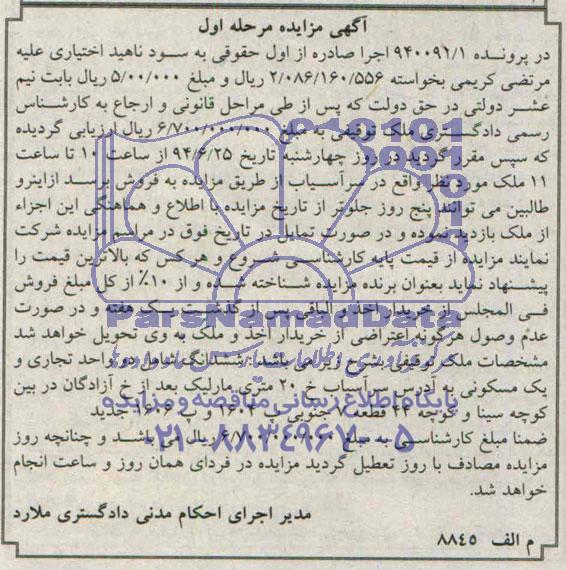 آگهی مزایده مرحله اول
در پرونده ۹۴۰۰۹۲/۱ اجرا صادره از اول حقوقی به سود ناهید اختیاری علیه
مرتضی کریمی بخواسته ۲/۰۸۶/۱۶۰/۵۵۶ ریال و مبلغ ۵/۰۰/۰۰۰ ریال بابت نیم
عشر دولتی در حق دولت که پس از طی مراحل قانونی و ارجاع به کارشناس
رسمی دادگستری ملک توقیفی به مبلغ ۶/۷۰۰/۰۰۰/۰۰۰ ریال ارزیابی گردیده
که سپس مقرر گردید در روز چهارشنبه تاریخ ۹۴/۶/۲۵ از ساعت ۱۰ تا ساعت
۱۱ ملک مورد نظر واقع در سرآسیاب از طریق مزایده به فروش برسد ازاینرو
طالبین می توانند پنج روز جلوتر از تاریخ مزایده با اطلاع و هماهنگی این اجراء
از ملک بازدید نموده و در صورت تمایل در تاریخ فوق در مراسم مزایده شرکت
نمایند مزایده از قیمت پایه کارشناسی شروع و هر کس که بالاترین قیمت را
پیشنهاد نماید بعنوان برنده مزایده شناخته شده و از ۱۰٪ از کل مبلغ فروش
فی المجلس از خریدار اخذ و الباقی پس از گذشت یک هفته و در صورت
عدم وصول هرگونه اعتراضی از خریدار اخذ و ملک به وی تحویل خواهد شد
مشخصات ملک توقیفی بشرح زیر می باشد: ششدانگ شامل دو واحد تجاری و
یک مسکونی به آدرس سرآسیاب خ ۲۰ متری مارلیک بعد از خ آزادگان در بین
کوچه سینا و کوچه ۴۴ قطعه ۷ جنوبی پ ۱۶۰۴ و پ ۱۶۰۶ جدید
ضمنا مبلغ کارشناسی به مبلغ ۶/۷۰۰/۰۰۰/۰۰۰ ریال می باشد و چنانچه روز
مزایده مصادف با روز تعطیل گردید مزایده در فردای همان روز و ساعت انجام
خواهد شد.
مدیر اجرای احکام مدنی دادگستری ملارد
م الف ۸۸۴۵
ParsNamadData
پایگاه اطلاع رسانی مناقصه و مزایده
۰۲۱-۸۸۳۴۹۶۷۰-۵